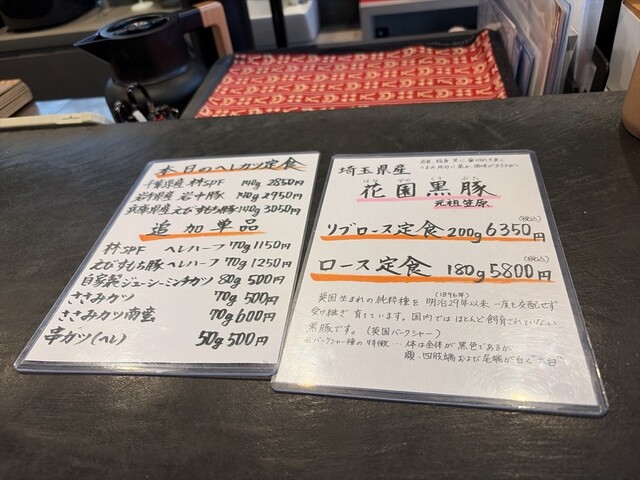 本日のヘレカツ定食
千葉県産 林SPF 140g 2850円
岩手県産 岩中豚 140g 2950円
兵庫県産 えびすもち豚 140g 3050円
追加単品
林SPF ヘレハーフ 70g 1150円
えびすもち豚 ヘレハーフ 70g 1250円
自家製ジューシーミンチカツ 80g 500円
ささみカツ 70g 500円
ささみカツ南蛮 70g 600円
串カツ(ヘレ) 50g 500円
埼玉県産
はな ぞの くろ ぶた
花園黒豚
元祖 笠原
(税込)
リブロース定食 200g 6350円
(税込)
ロース定食 180g 5800円
(1896年)
英国生まれの純粋種を 明治29年以来 一度も交配せず
受け継ぎ 育てています。国内では ほとんど飼育されていない
黒豚です。(英国バークシャー)
※バークシャー種の特徴… 体は全体が黒色であるが
四肢端および尾端が白く"六白"